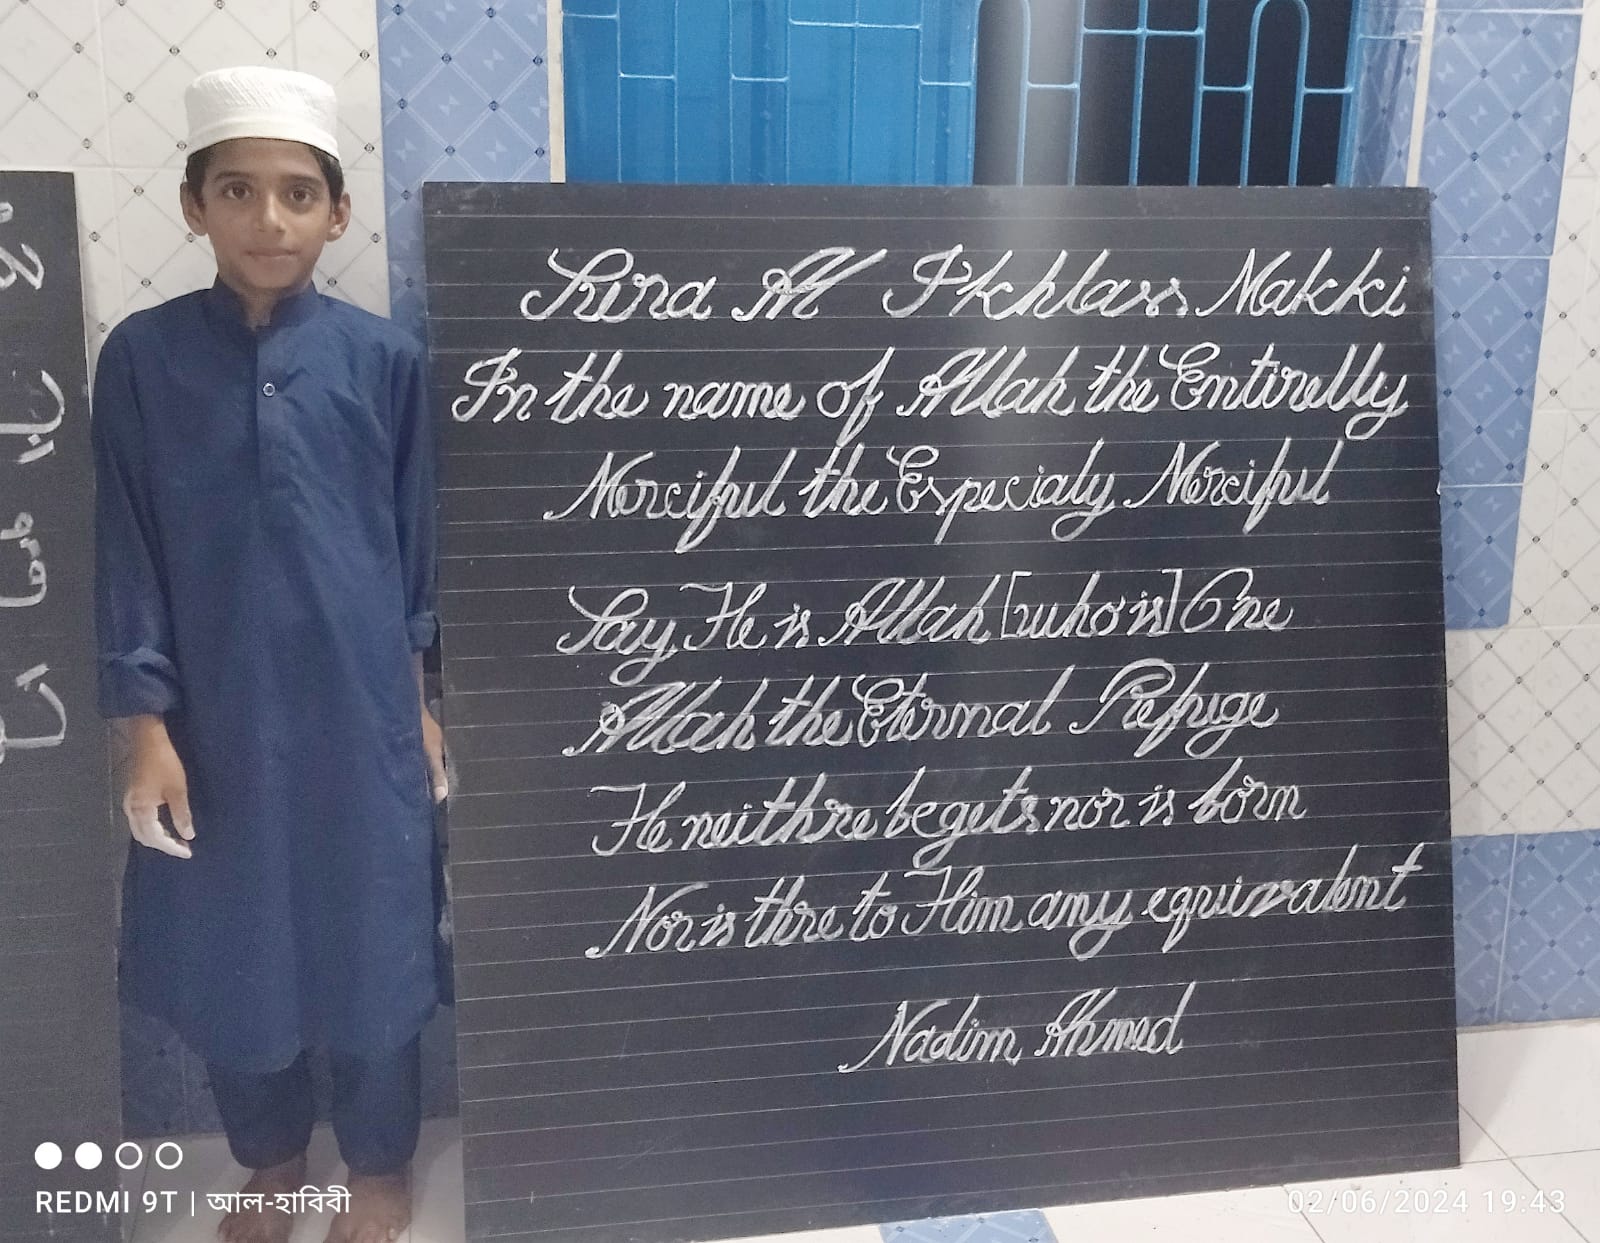 Sura Al Ikhlass Makki
In the name of Allah the Entirelly
Merciful the Especialy Merciful
Say He is Allah [who is] One
Allah the Eternal Refuge
He neithre begets nor is born
Nor is thre to Him any equivalent
Nadim Ahmed
REDMI 9T | আল-হাবিবী
02/06/2024 19:43